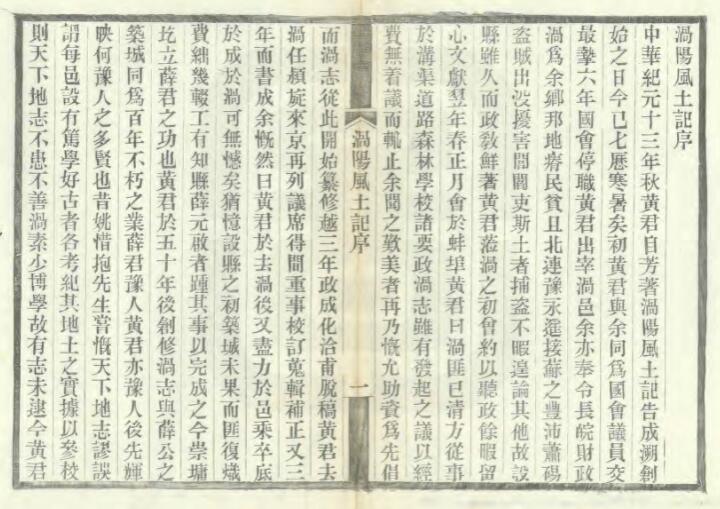 渦陽風土記序
中華紀元十三年秋黃君自芳著渦陽風土記告成溯創
始之日今已七歷寒暑矣初黃君與余同爲國會議員交
最摯六年國會停職黃君出宰渦邑余亦奉令長皖財政
渦爲余鄉那地瘠民貧且北連豫永遙接蘇之豐沛蕭碭
盜賊出没擾害閭閻吏斯土者捕盜不暇遑論其他故設
縣雖久而政敎鮮著黃君蒞渦之初會約以聽政餘暇留
心文獻翌年春正月會於蚌埠黃君曰渦匪已清方從事
於溝渠道路森林學校諸要政渦志雖有發起之議以經
費無着議而輒止余聞之歎美者再乃慨允助資爲先倡
渦陽風土記序
一
而渦志從此開始纂修越三年政成化洽甫脫稿黃君去
渦任頻旋來京再列議席得間重事校訂蒐輯補正又三
年而書成余慨然曰黃君於去渦後又盡力於邑乘卒底
於成於渦可無憾矣猶憶設縣之初築城未果而匪復熾
費絀幾輟工有知縣薛元啟者踵其事以完成之今崇墉
圪立薛君之功也黃君於五十年後創修渦志與薛公之
築城同爲百年不朽之業薛君豫人黃君亦豫人後先輝
映何豫人之多賢也昔姚惜抱先生嘗慨天下地志謬誤
謂每邑設有篤學好古者各考紀其地土之實據以參校
則天下地志不患不善渦素少博學故有志未逮今黃君